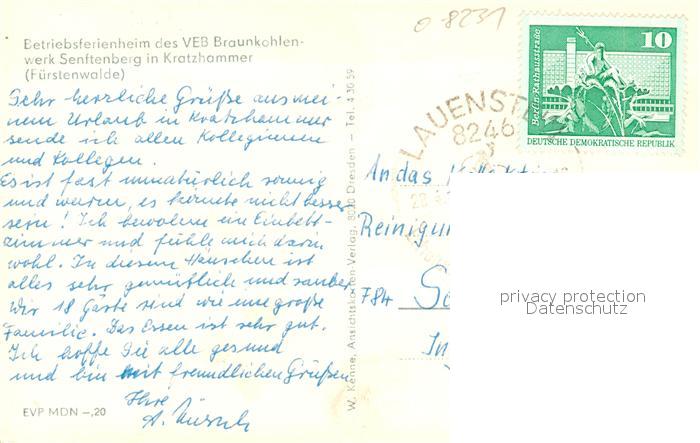 Betriebsferienheim des VEB Braunkohlen-
werk Senftenberg in Kratzhammer
(Fürstenwalde)
Sehr herzliche Grüße aus mei-
nem Urlaub in Kratzhammer
sende ich allen Kolleginnen
und Kollegen.
Es ist fast unnatürlich sonnig
und warm, es könnte nicht besser
sein! Ich bewohne ein Einbett-
zimmer und fühle mich darin
wohl. In diesem Häuschen ist
alles sehr gemütlich und sauber.
Wir 18 Gäste sind wie eine große
Familie. Das Essen ist sehr gut.
Ich hoffe Sie alle gesund
und bin mit freundlichen Grüßen
Ihre
A.
EVP MDN –,20
W. Kenne, Ansichtskarten-Verlag, 8020 Dresden – Tel. 4 30 59
0 8231
LAUENSTE
8246
Berlin-Rathausstraße
10
DEUTSCHE DEMOKRATISCHE REPUBLIK
An das
Reinigun
784 S
In
privacy protection
Datenschutz